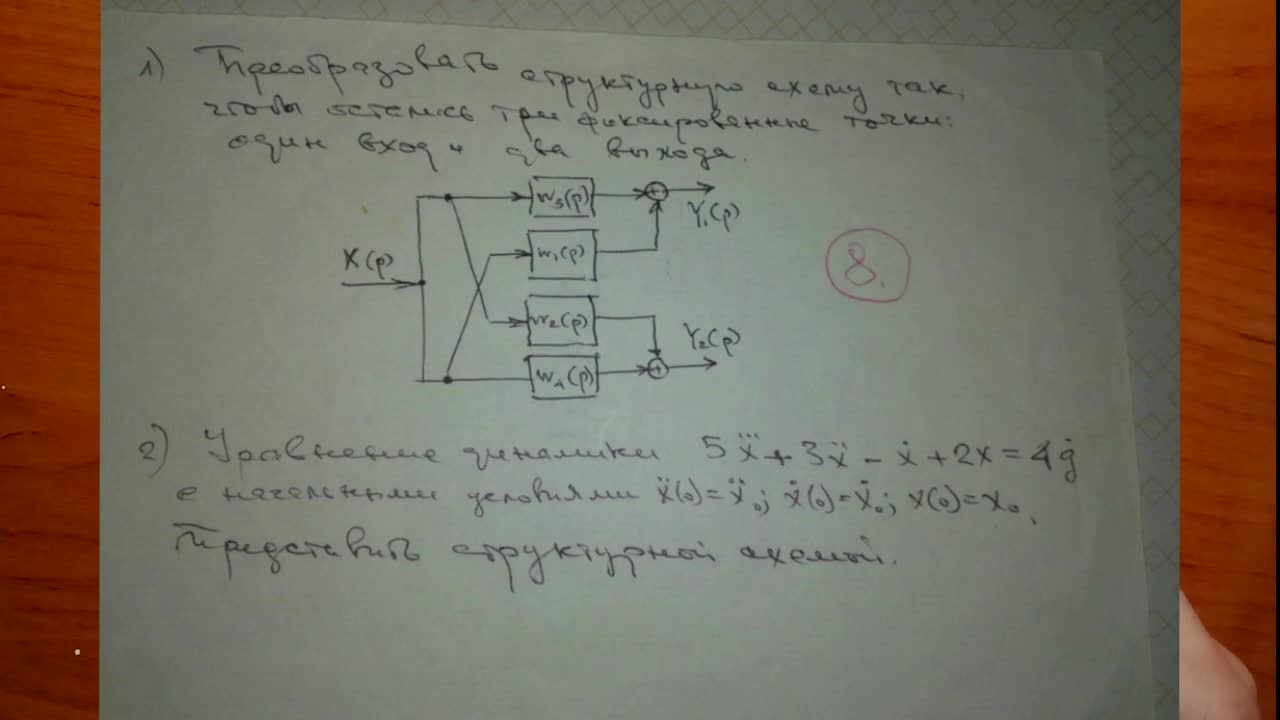 1) Преобразовать структурную схему так,
чтобы остались три фиксированные точки:
один вход и два выхода.
W₃(p)
Y₁(p)
W₁(p)
X(p)
8.
W₂(p)
Y₂(p)
W₄(p)
2) Уравнение динамики 5x⃛ + 3ẍ − ẋ + 2x = 4ġ
с начальными условиями ẍ(0)=ẍ₀; ẋ(0)=ẋ₀; x(0)=x₀.
Представить структурной схемой.